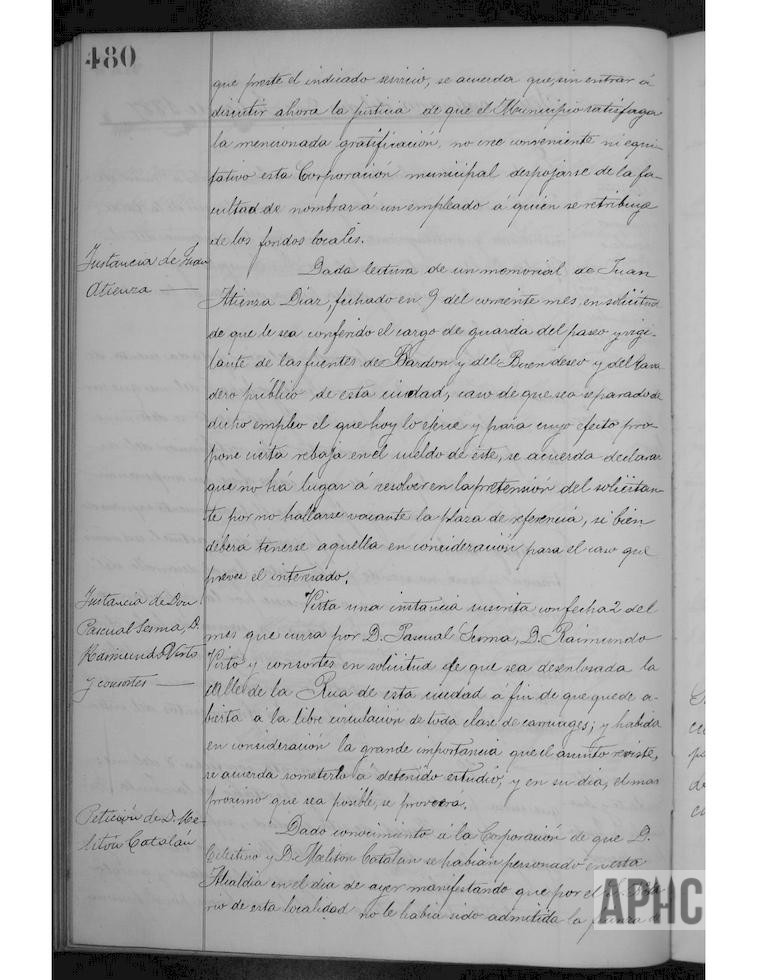 480
que preste el indicado servicio, se acuerda que, sin entrar á
discutir ahora la justicia de que el Municipio satisfaga
la mencionada gratificación, no cree conveniente ni equi-
tativo esta Corporación municipal despojarse de la fa-
cultad de nombrar á un empleado á quien se retribuye
de los fondos locales.
Instancia de Juan
Atienza
Dada lectura de un memorial de Juan
Atienza Diaz, fechado en 9 del corriente mes, en solicitud
de que le sea conferido el cargo de guarda del paseo y vigi-
lante de las fuentes de Bardon y del Buen deseo y del lava
dero público de esta ciudad, caso de que sea separado de
dicho empleo el que hoy lo ejerce y para cuyo efecto pro-
pone cierta rebaja en el sueldo de éste, se acuerda declarar
que no há lugar á resolver en la pretensión del solicitan-
te por no hallarse vacante la plaza de referencia, si bien
deberá tenerse aquella en consideración para el caso que
prevee el interesado.
Instancia de Don
Pascual Sesma, D.
Raimundo Virto
y consortes
Vista una instancia suscrita con fecha 2 del
mes que cursa por D. Pascual Sesma, D. Raimundo
Virto y consortes en solicitud de que sea desenlosada la
calle de la Rua de esta ciudad á fin de que quede a-
bierta á la libre circulación de toda clase de carruages; y habida
en consideración la grande importancia que el asunto reviste,
se acuerda someterlo á detenido estudio, y en su dia, el mas
proximo que sea posible, se proveera.
Petición de D. Me-
litón Catalán
Dado conocimiento á la Corporación de que D.
Celestino y D. Meliton Catalan se habian personado en esta
Alcaldia en el dia de ayer manifestando que por el
rio de esta localidad no le habia sido admitida la
APHC